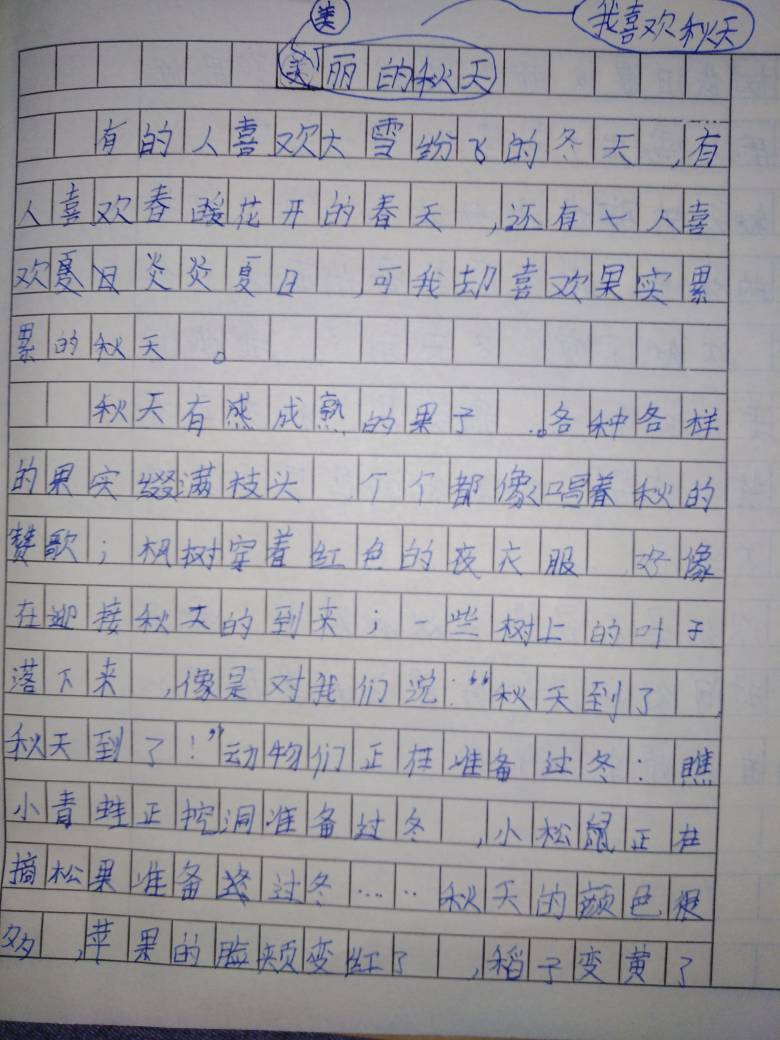 美
我喜欢秋天
美丽的秋天
有的人喜欢大雪纷飞的冬天,有
人喜欢春暖花开的春天,还有人喜
欢夏日炎炎夏日,可我却喜欢果实累
累的秋天。
秋天有成熟的果子。各种各样
的果实缀满枝头,个个都像唱着秋的
赞歌;枫树穿着红色的衣服 好像
在迎接秋天的到来;一些树上的叶子
落下来,像是对我们说:“秋天到了,
秋天到了!”动物们正在准备过冬:瞧
小青蛙正挖洞准备过冬,小松鼠正在
摘松果准备过冬……秋天的颜色很
多,苹果的脸颊变红了,稻子变黄了